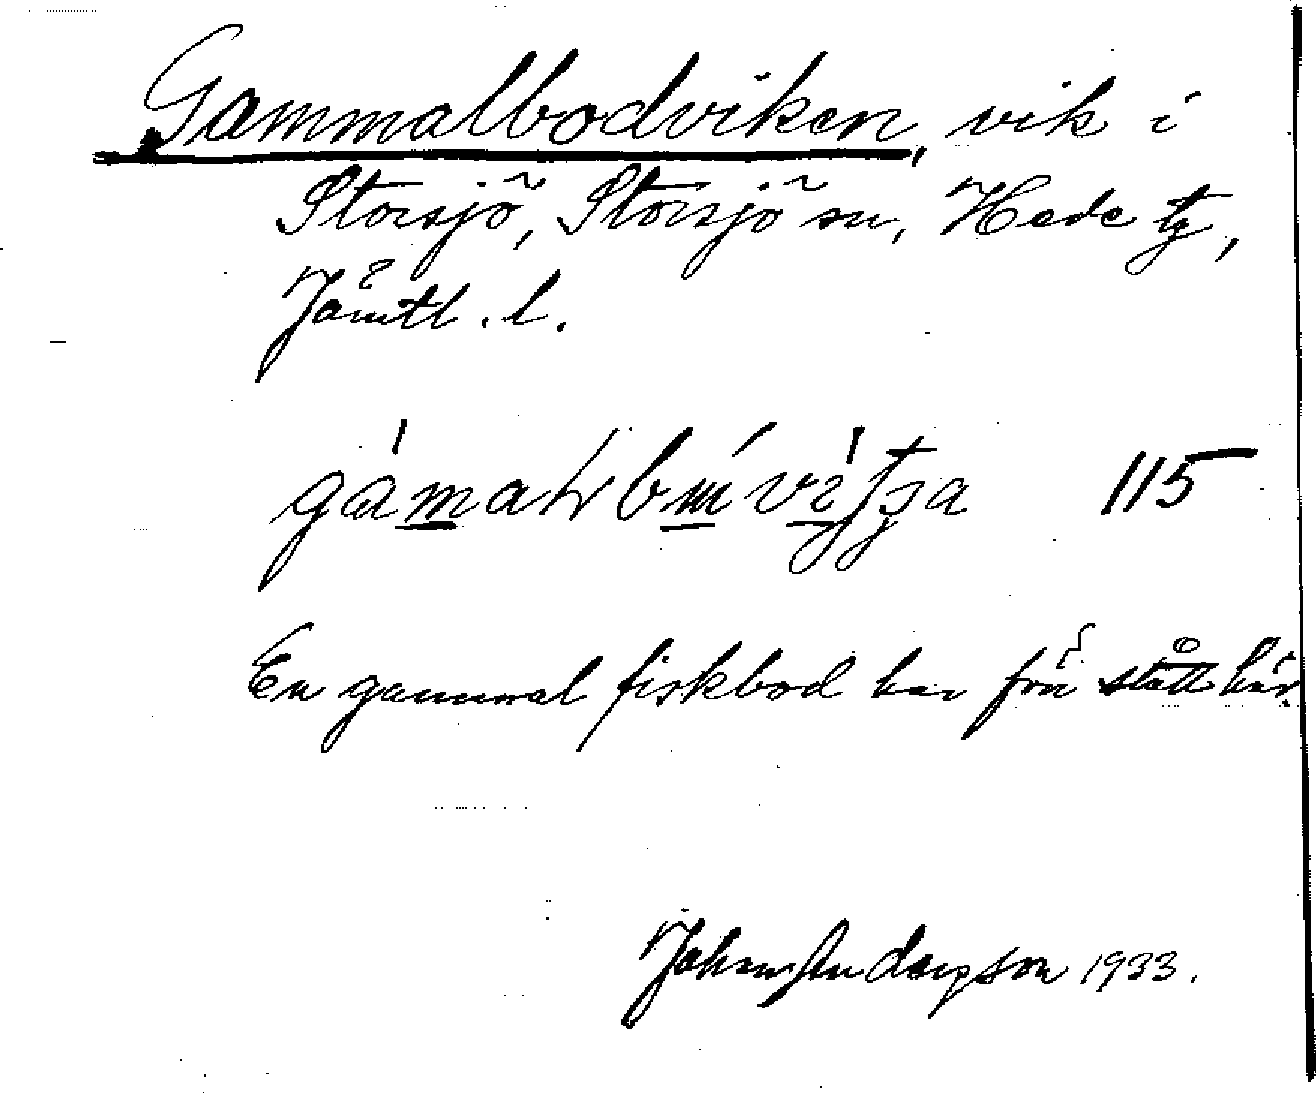 Gammalbodviken, vik i
Storsjö, Storsjö sn, Hede tg,
Jämtl. l.
115
En gammal fiskbod har förr stått här.
Johan Anderson 1933.